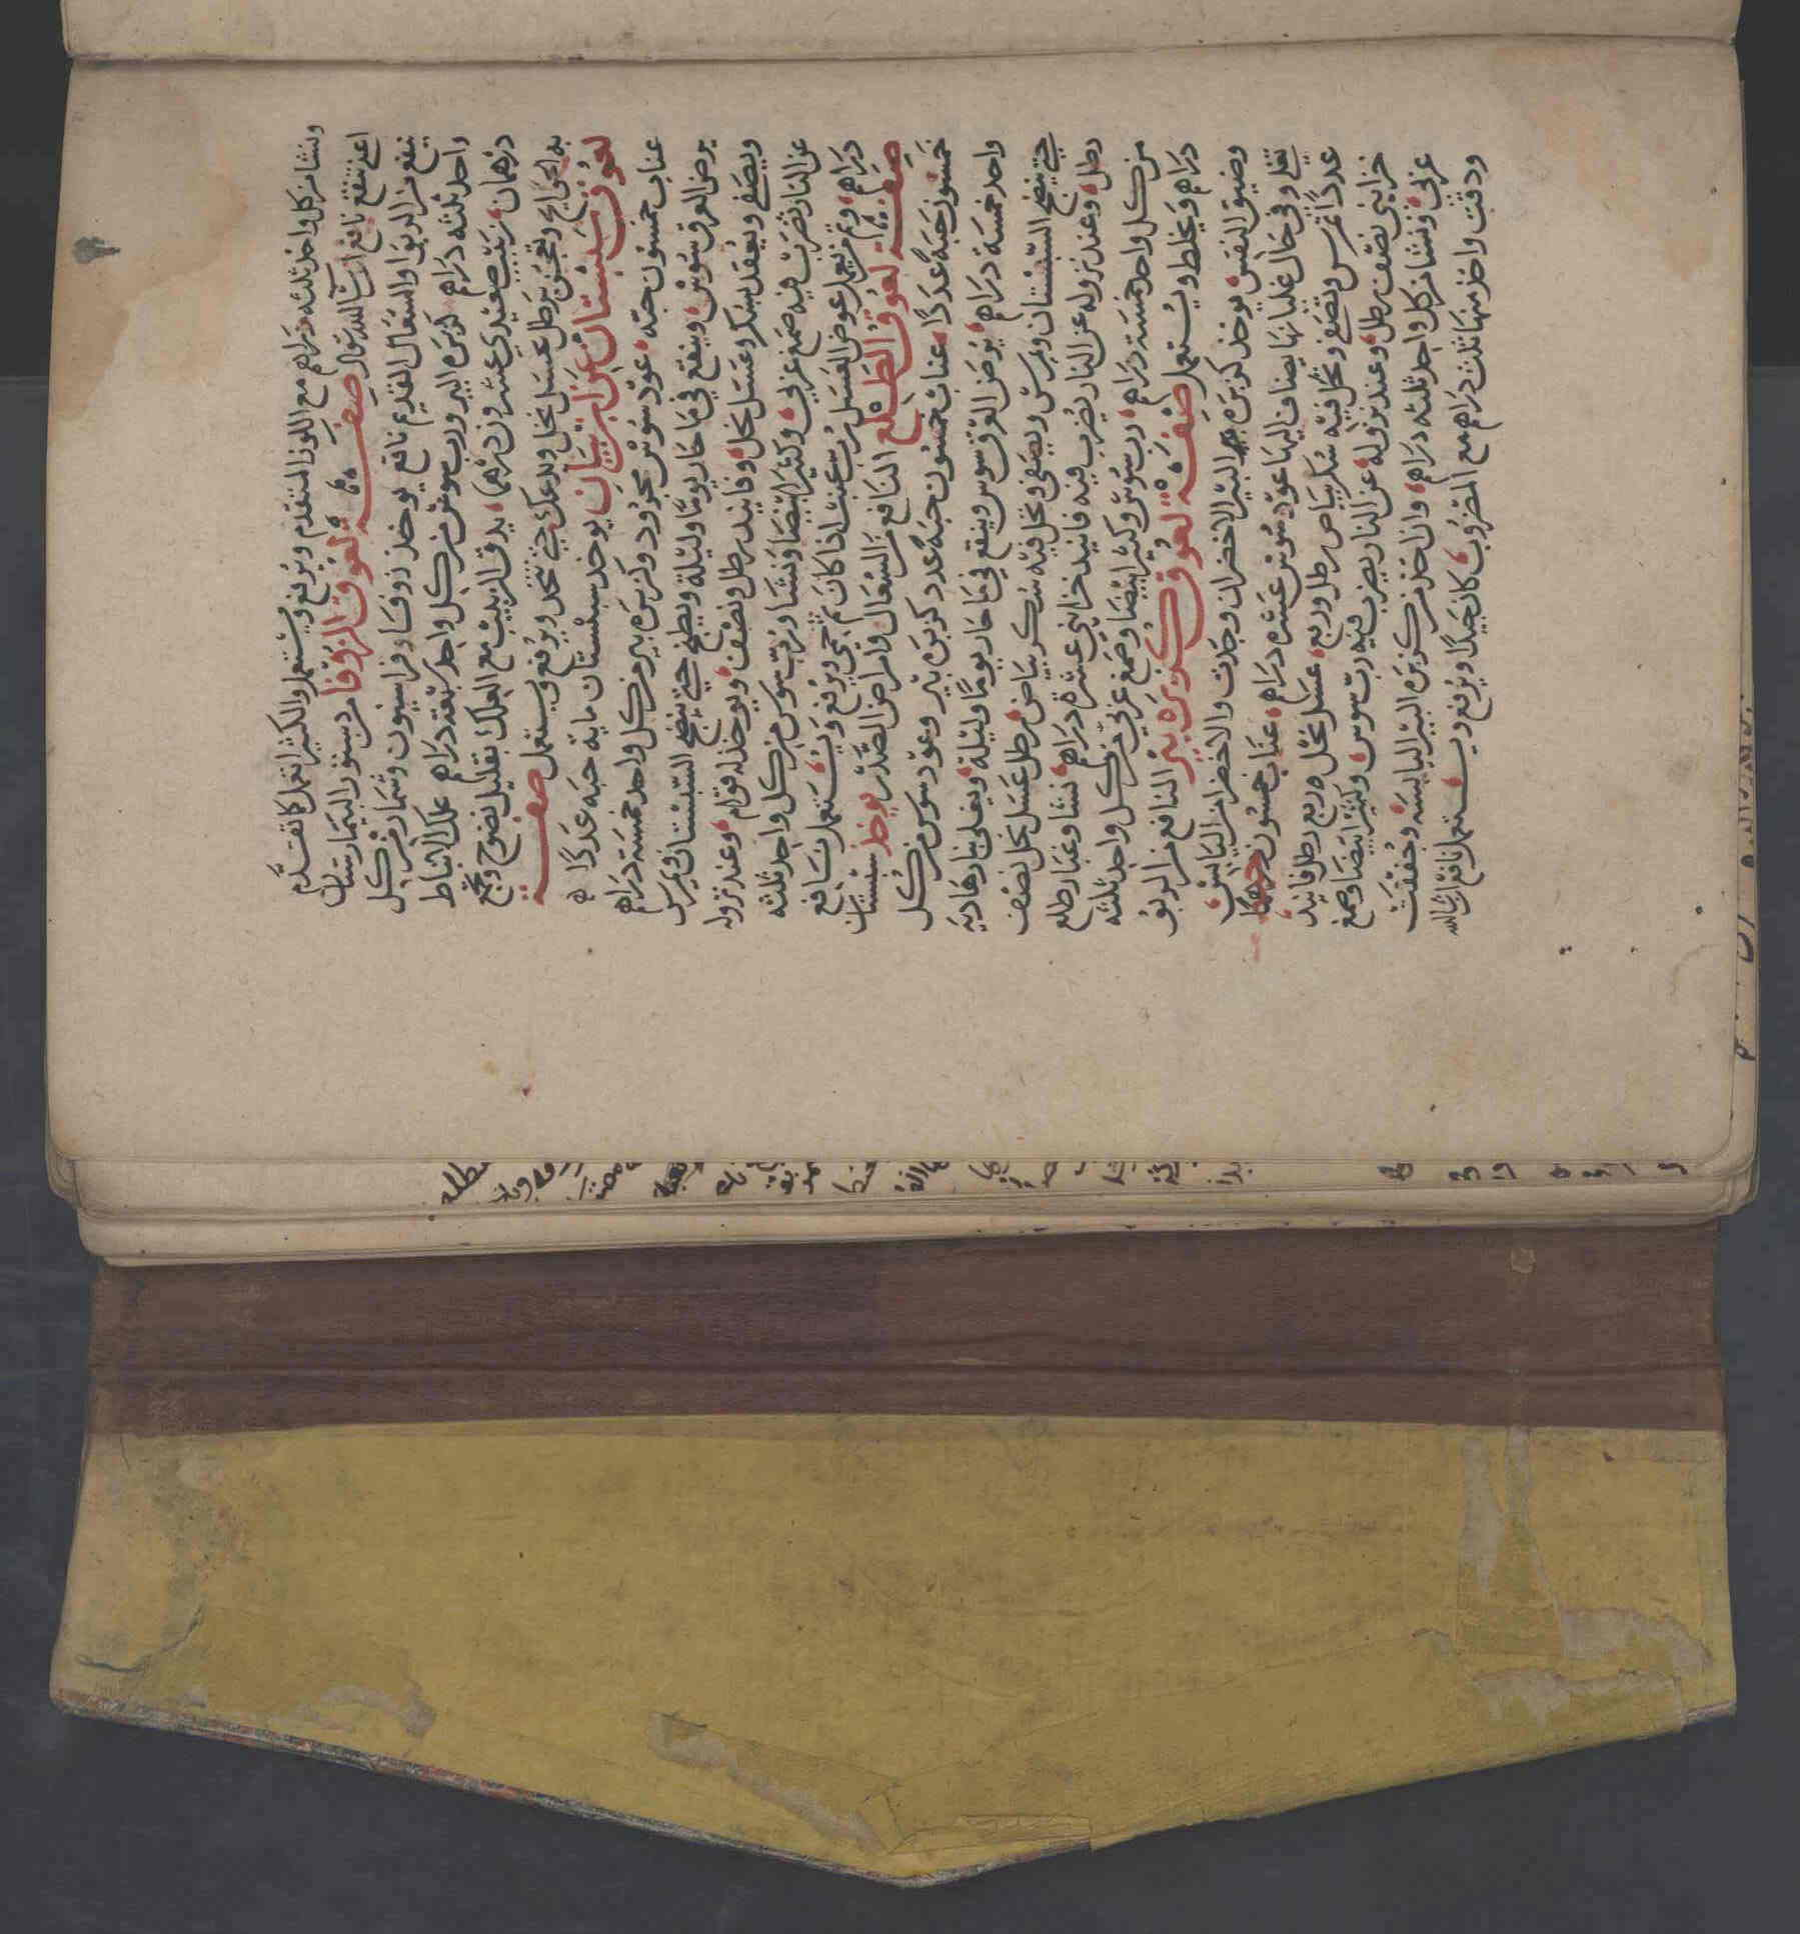 ونشا من كل واحد ثلثه دراهم مع اللوز المتقدم ويرفع ويستعمل والكثيرا تعمل كما تقدم
اعني تنقع نافع ان شا الله تعالى صفة لعوق الزوفا من دستور البيمارستان
ينفع من الربو والسعال القديم نافع يوخذ زوفا وفراسيون وشمار من كل
واحد ثلثه دراهم كزبرة البير ورب سوس من كل واحد سبعة دراهم علك الانباط
درهمان زبيب صعيدي عشرون درهما يدق الزبيب مع العلك بقليل نضوح وتجمع
به الحوايج وتعجن برطل عسل نحل ويدعك حتي تنحل ويرفع ويستعمل صفة
لعوق سبستان عن ابن البيان يوخذ سبستان ماية حبه عددا
عناب خمسون حبه عود سوس مجرود وكزبره بير من كل واحد خمسة دراهم
يرض العرق سوس وينقع في ما حار يوما وليلة ويطبخ حتي ينضج السبستان ويمرس
ويصفي ويعقد بسكر وعسل نحل وفانيد رطل ونصف ويوخذ له قوام وعند نزوله
عن النار يضرب فيه صمغ عربي وكثيرا بيضا ونشا ورب سوس من كل واحد ثلثه
دراهم ومنهم من يعمل عوض العسل رب عنب اذا كان ثم حمي ويرفع ويستعمل نافع
صفة لعوق الطلع النافع من السعال وامراض الصدر يوخذ سبستان
خمسون حبة عددا عناب خمسون حبة عدد كزبره بير وعود سوس من كل
واحد خمسة دراهم يرض العرق سوس وينقع في ما حار يوما وليلة ويغلى بنار هادية
حتي ينضج السبستان ويمرس ويصفى وتحل فيه سكر بياض رطل عسل نحل نصف
رطل وعند نزوله عن النار يضرب فيه فانيد خزايني عشرة دراهم نشا وغبار طلع
من كل واحد خمسة دراهم رب سوس وكثيرا بيضا وصمغ عربي من كل واحد ثلثه
دراهم ويخلط ويستعمل صفة لعوق كزبرة بير النافع من الربو
وضيق النفس يوخذ كزبره البير الاخضر ان وجدت والا خضرا من اليابس
تغلي وفي حال غليانها يضاف اليها عود سوس عشره دراهم عناب خمسون
عددا تمرس وتصفي وتحل فيه سكر بياض رطل وربع عسل نحل ربع رطل فانيد
خزايني نصف رطل وعند نزوله عن النار يضرب فيه رب سوس وكثيرا بيضا وصمغ
عربي ونشا من كل واحد ثلثه دراهم وان اخذ من كزبرة البير اليابسه وجففت
ودقت واخذ منها ثلث دراهم مع المضروب كان جيدا ويرفع ويستعمل نافع ان شا الله